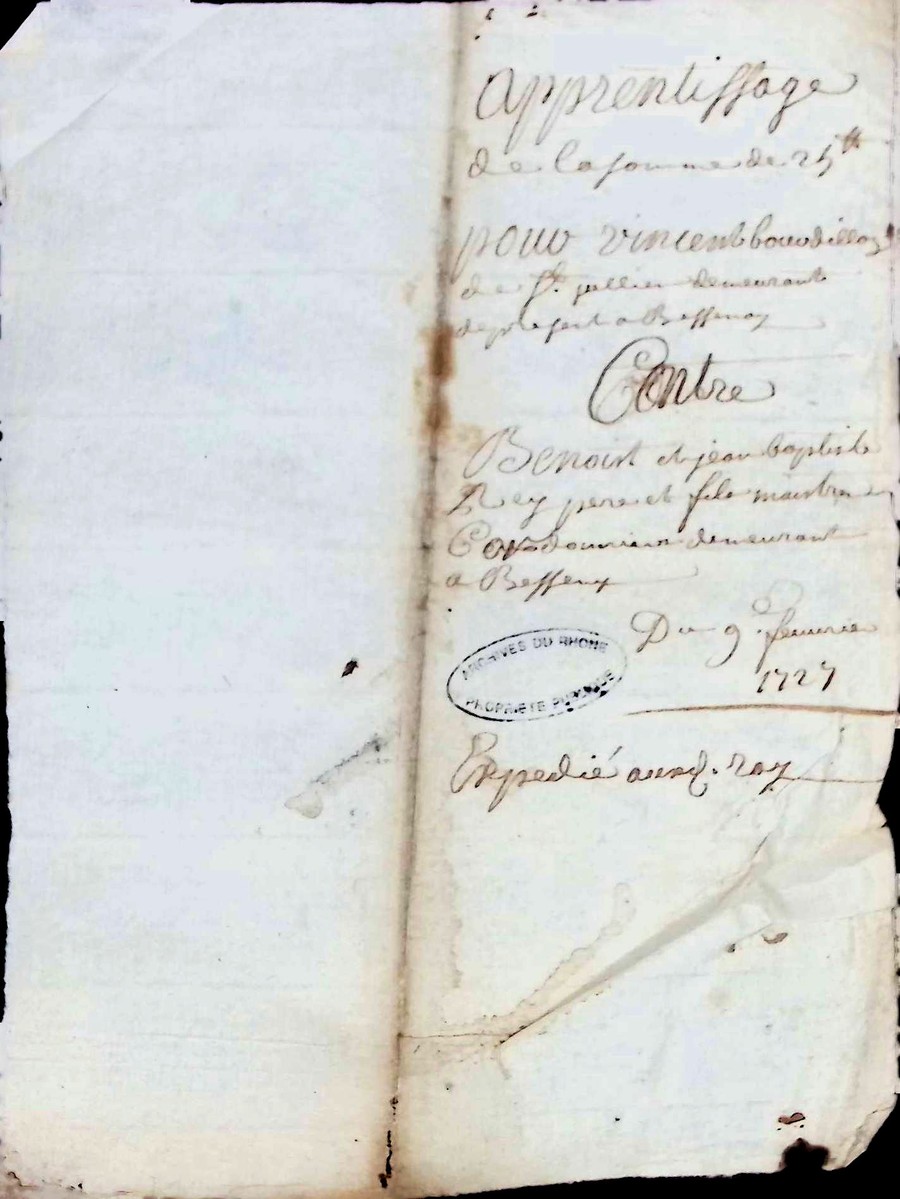 apprentissage
de la somme de 25 tt
pour vincent bourdillon
de st. jullien demeurant
de present a Bessenay
Contre
Benoist et jean baptiste
Rey pere et fils maistres
Cordonniers demeurant
a Bessenay
Du 9e. feuurier
1727
ARCHIVES DU RHONE
PROPRIÉTÉ PUBLIQUE
Expedié aud. rey